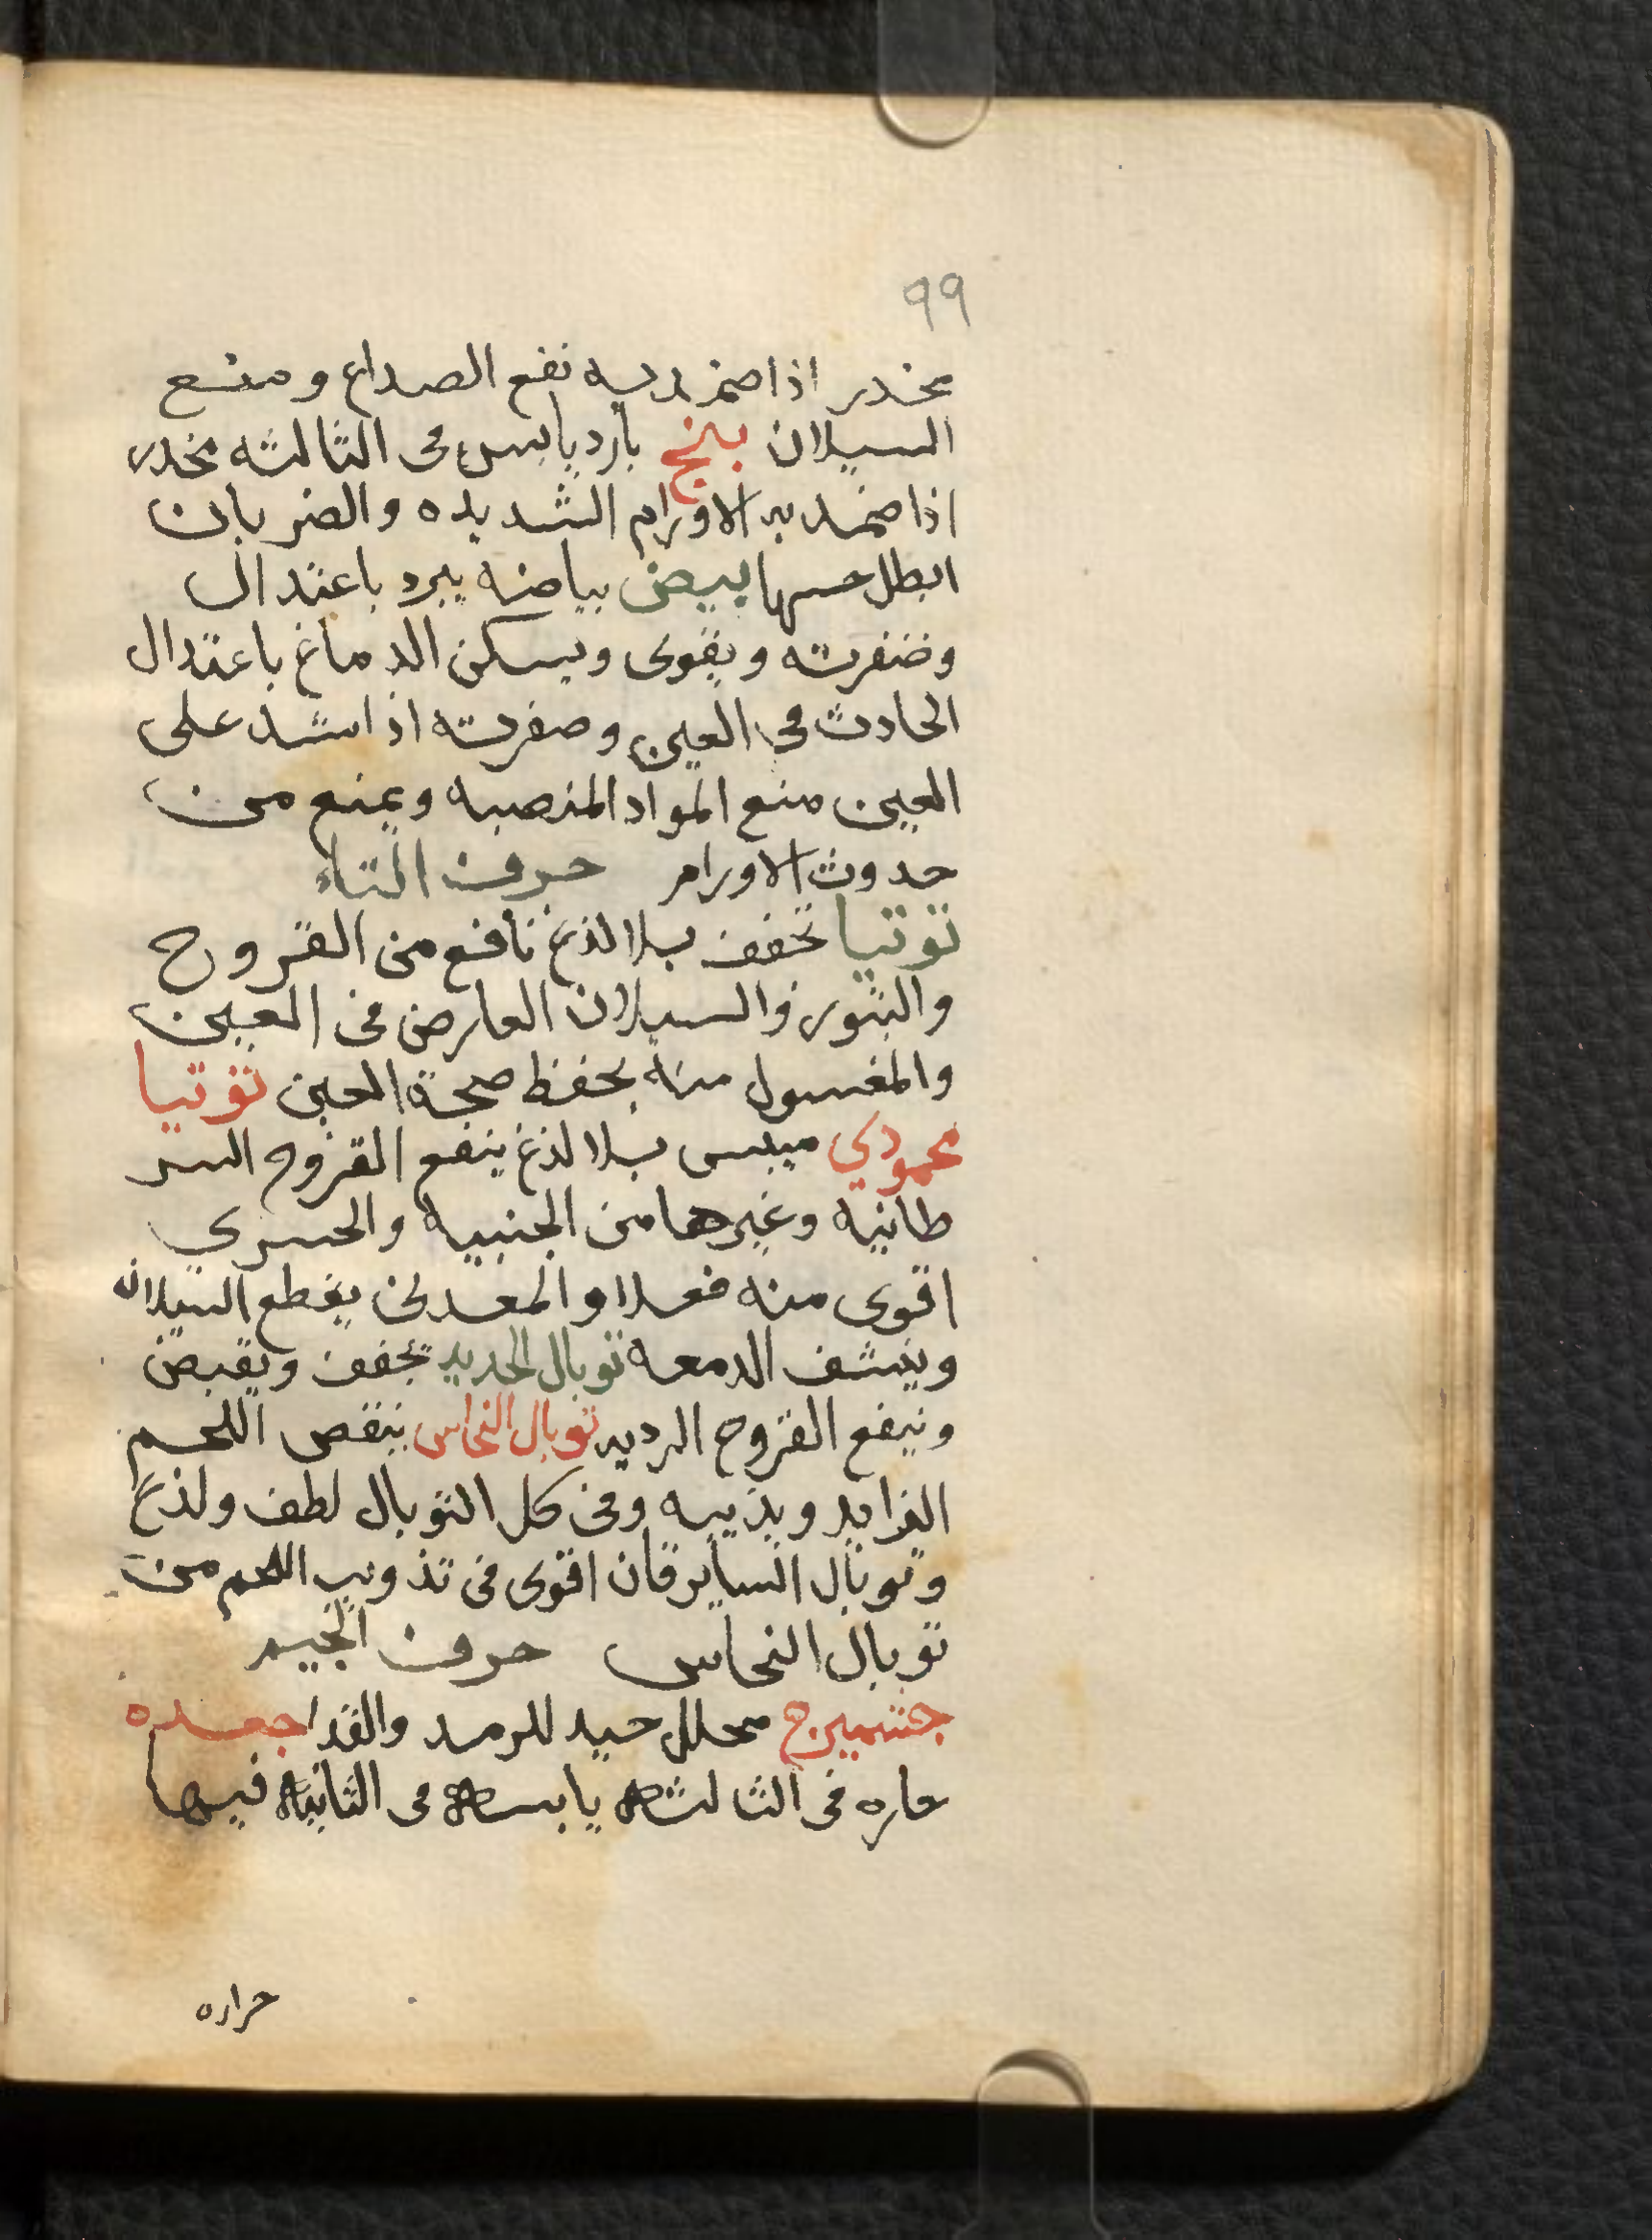 99
مخدر اذا ضمد به نفع الصداع ومنع
السيلان بنج بارد يابس فى الثالثه مخدر
اذا ضمد به الاورام الشديده والضربان
ابطل حسها بيض بياضه يبرد باعتدال
وضفرته ويقوى ويسكن الدماغ باعتدال
الحادث فى العين وصفرته اذا شد على
العين منع المواد المنصبه ويمنع من
حدوث الاورام حرف التاء
توتيا تجفف بلا لذع نافع من القروح
والبثور والسيلان العارض فى العين
والمغسول منه يحفظ صحة العين توتيا
محمودي ميبس بلا لذع ينفع القروح السر
طانيه وغيرها من الجنبيه والحسري
اقوى منه فعلا والمعدنى يقطع السيلان
وينشف الدمعه توبال الحديد تجفف ويقبض
وينفع القروح الرديه توبال النحاس ينقص اللحم
الزايد ويذيبه وفى كل التوبال لطف ولذع
وتوبال السابرقان اقوى فى تذويب اللحم من
توبال النحاس حرف الجيم
جشميزج محلل جيد للرمد والقدا جعده
حاره فى الثالثه يابسه فى الثانيه فيها
حراره